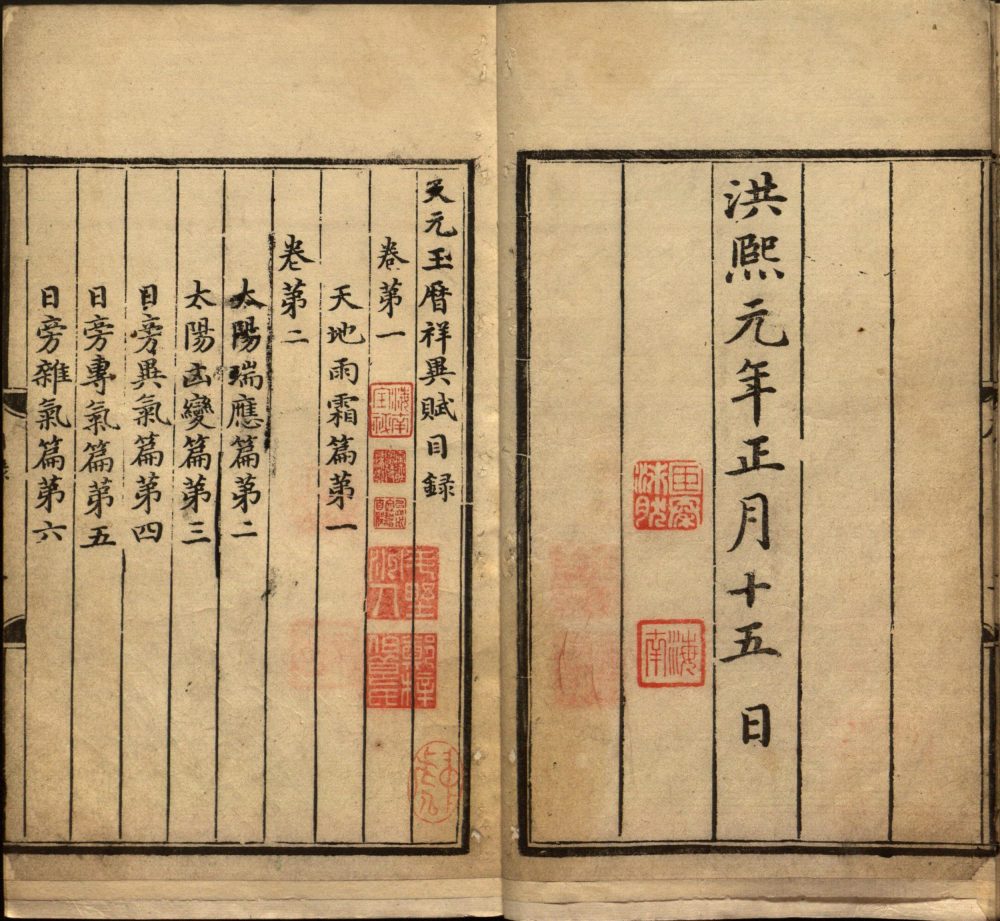 洪熙元年正月十五日
天元玉曆祥異賦目録
卷第一
天地雨霜篇第一
卷第二
太陽瑞應篇第二
太陽凶變篇第三
日旁異氣篇第四
日旁專氣篇第五
日旁雜氣篇第六
海南